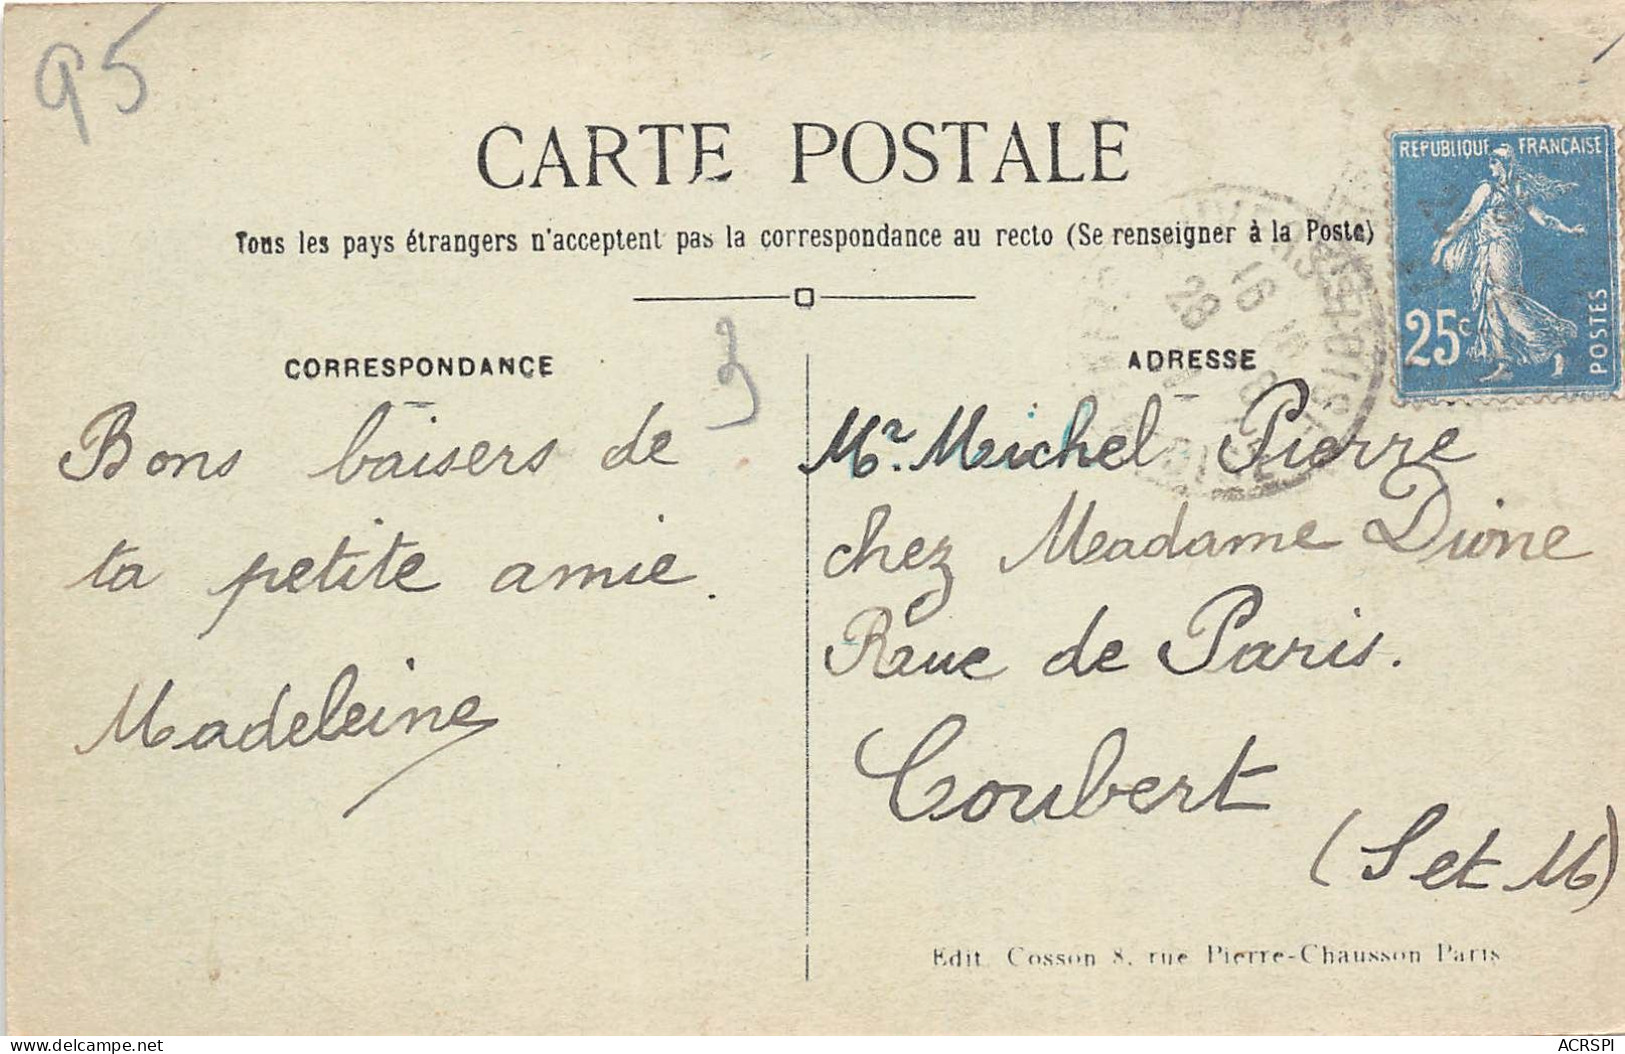 95
CARTE POSTALE
Tous les pays étrangers n'acceptent pas la correspondance au recto (Se renseigner à la Poste)
REPUBLIQUE FRANÇAISE
25c
POSTES
16
28
CORRESPONDANCE
Bons baisers de
ta petite amie.
Madeleine
ADRESSE
Mr. Michel Pierre
chez Madame Dione
Rue de Paris.
Coubert
(S et M)
Edit. Cosson 8, rue Pierre-Chausson Paris
delcampe.net
ACRSPI